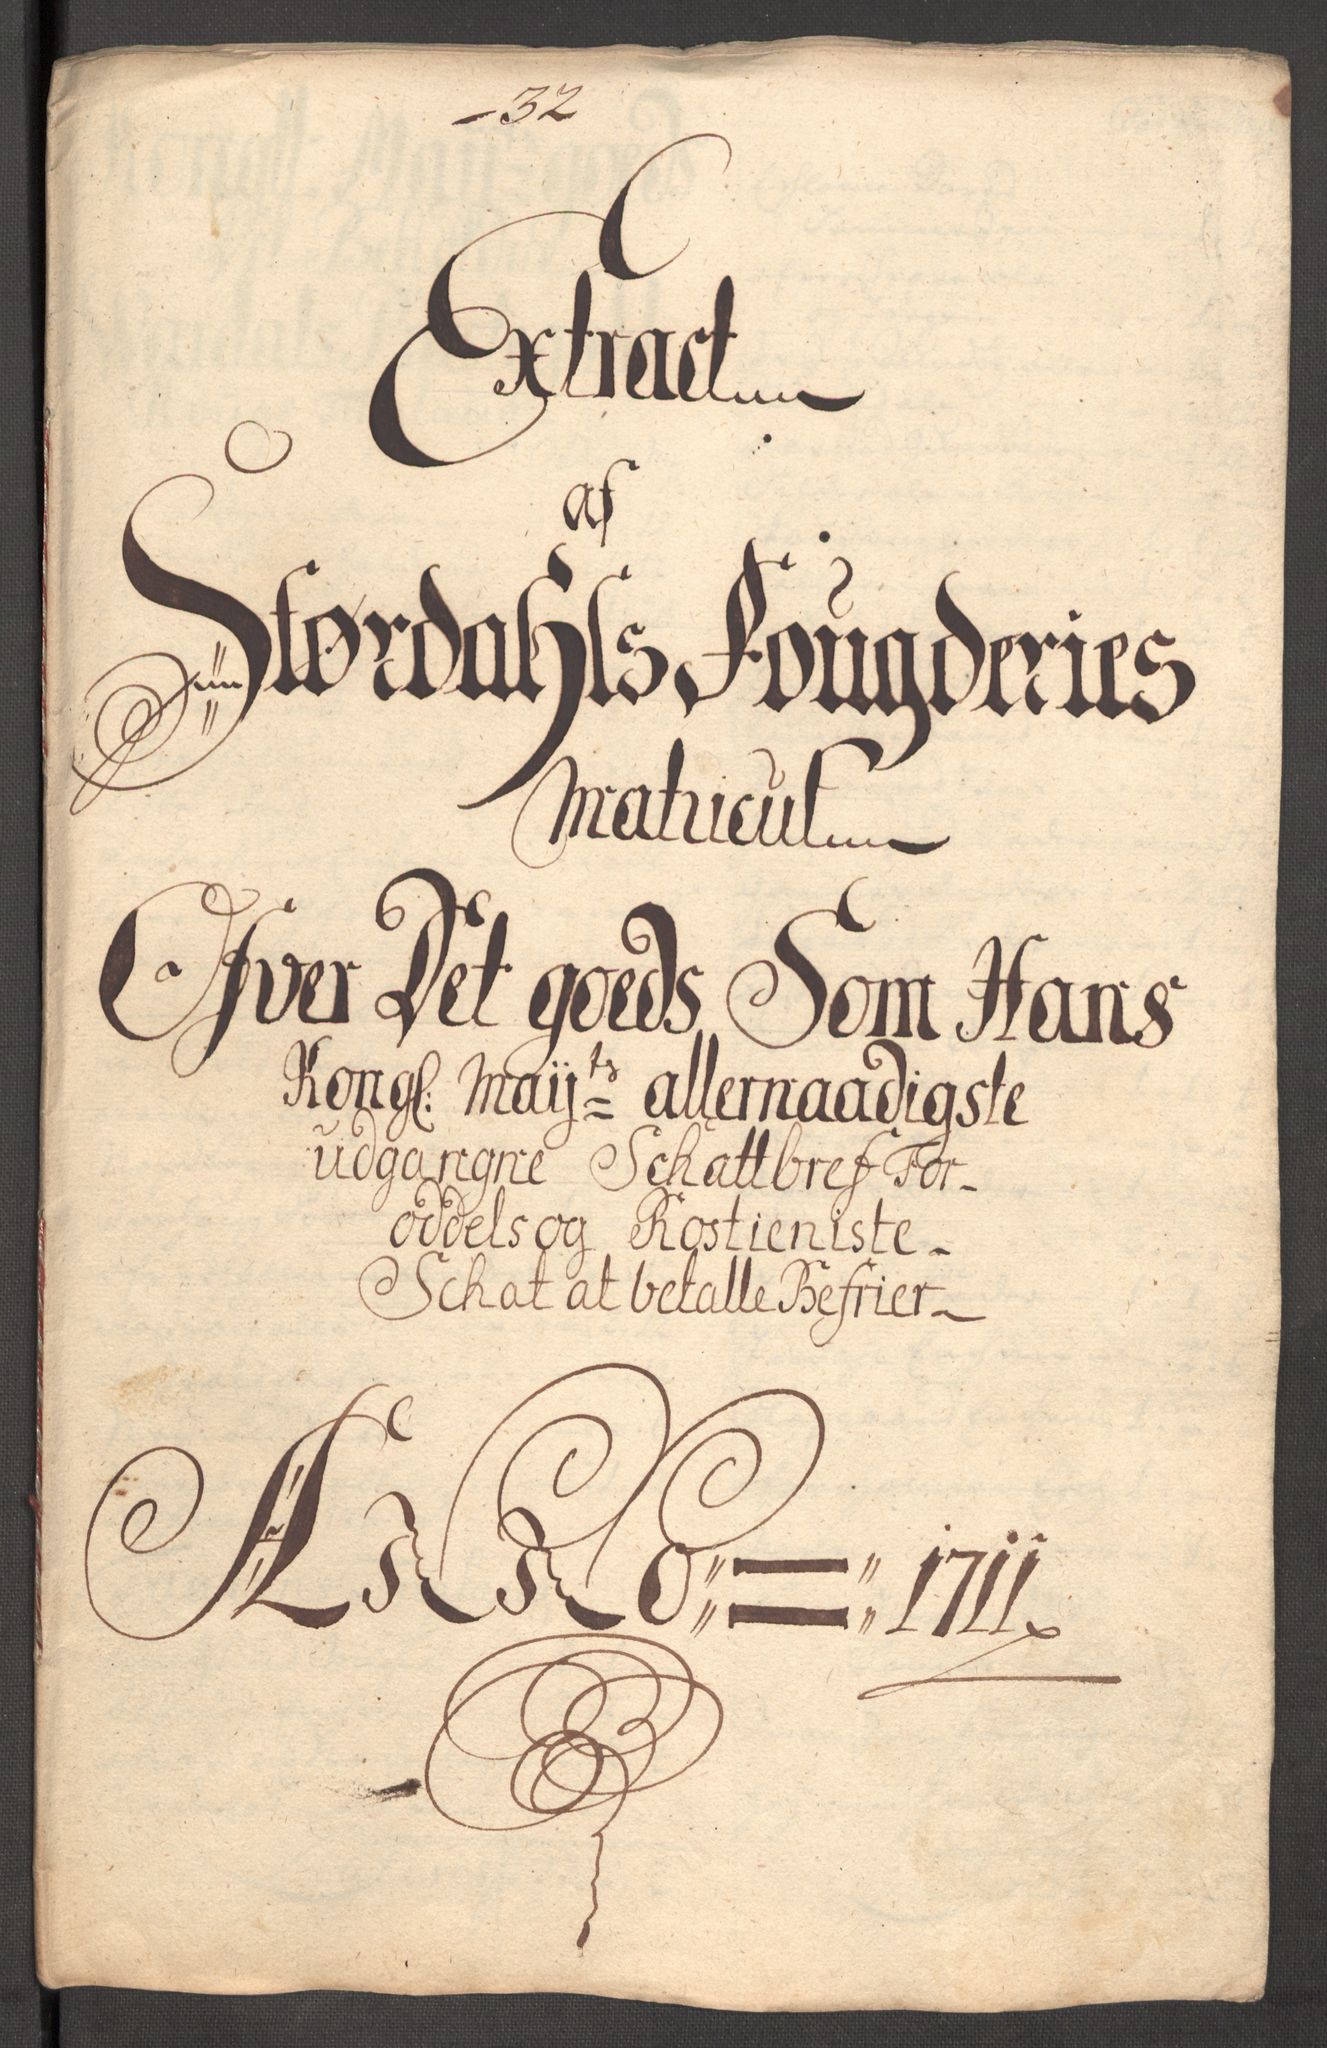 32
Extract
af
Størdahls Fougderies
Matricul
Ofver Det goeds Som Hans
Kongl: Maÿts allernaadigste
udgangne Schattbref For
oddels og Rostieniste
Schat at betalle Befrier
ANNO = 1711